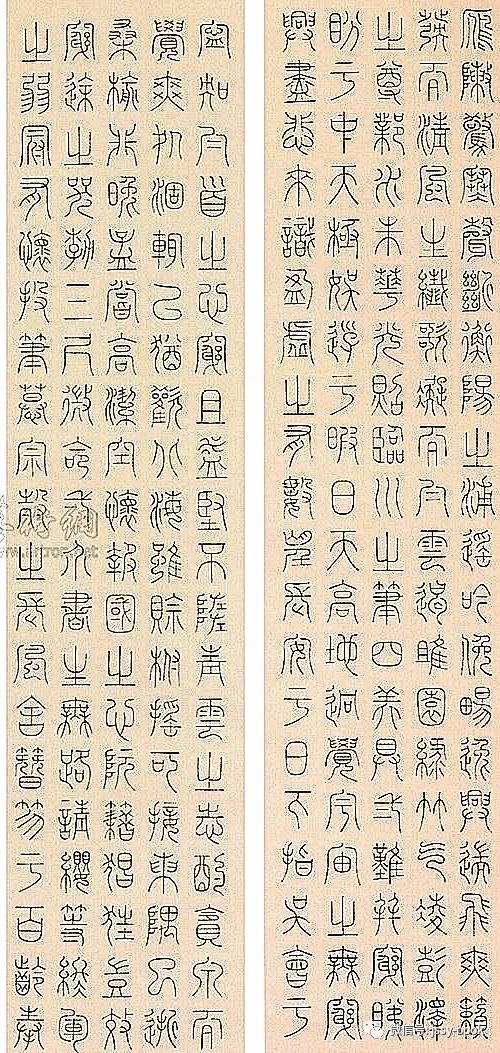 雁陣驚寒聲斷衡陽之浦遙吟俛暢逸興遄飛爽籟
發而清風生纖歌凝而白雲遏睢園綠竹氣凌彭澤
之尊鄴水朱華光照臨川之筆四美具二難并窮睇
眄于中天極娛遊于暇日天高地迥覺宇宙之無窮
興盡悲來識盈虛之有數望長安于日下指吳會于
寧知白首之心窮且益堅不墜青雲之志酌貪泉而
覺爽処涸轍以猶歡北海雖賒扶搖可接東隅已逝
桑榆非晚孟嘗高潔空懷報國之心阮籍猖狂豈效
窮途之哭勃三尺微命一介書生無路請纓等終軍
之弱冠有懷投筆慕宗慤之長風舍簪笏于百齡奉
微信号